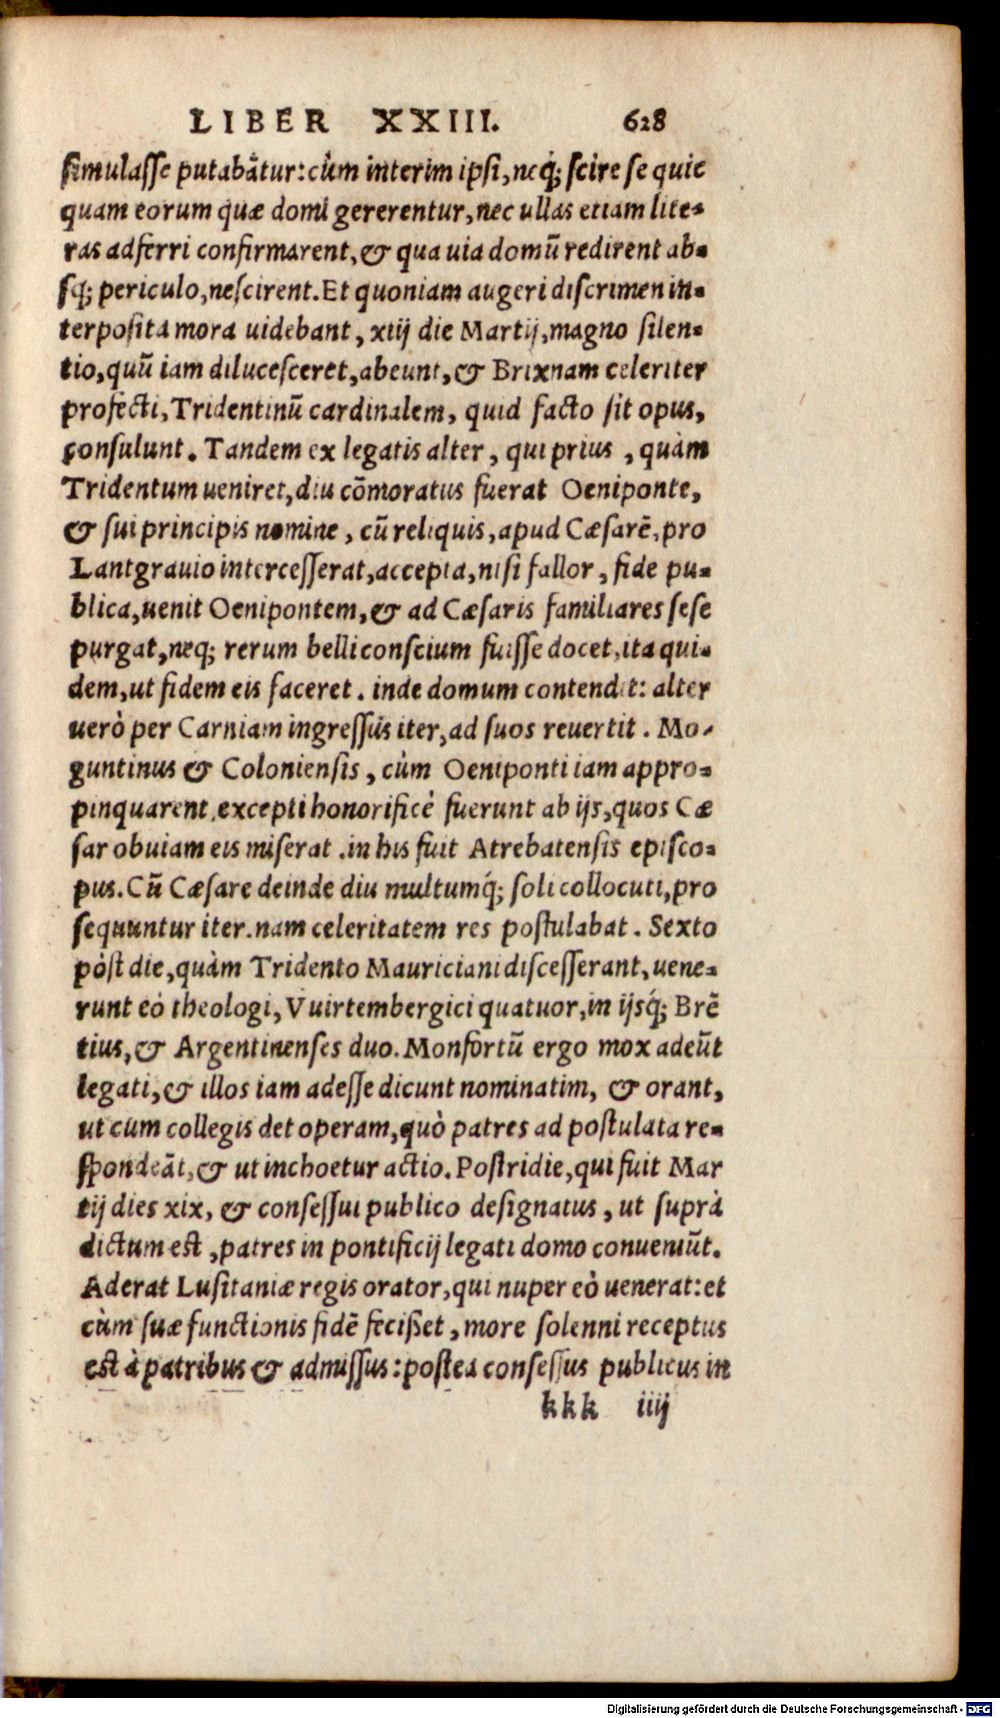 LIBER XXIII. 628
simulasse putabãtur: cùm interim ipsi, neq́; scire se quic
quam eorum quæ domi gererentur, nec ullas etiam lite-
ras adferri confirmarent, & qua uia domũ redirent ab-
sq́; periculo, nescirent. Et quoniam augeri discrimen in-
terposita mora uidebant, xiij die Martij, magno silen-
tio, quũ iam dilucesceret, abeunt, & Brixnam celeriter
profecti, Tridentinũ cardinalem, quid facto sit opus,
consulunt. Tandem ex legatis alter, qui prius, quàm
Tridentum ueniret, diu cõmoratus fuerat Oeniponte,
& sui principis nomine, cũ reliquis, apud Cæsarẽ, pro
Lantgrauio intercesserat, accepta, nisi fallor, fide pu-
blica, uenit Oenipontem, & ad Cæsaris familiares sese
purgat, neq; rerum belli conscium fuisse docet, ita qui-
dem, ut fidem eis faceret. inde domum contendit: alter
uerò per Carniam ingressus iter, ad suos reuertit. Mo-
guntinus & Coloniensis, cùm Oeniponti iam appro-
pinquarent, excepti honorificè fuerunt ab ijs, quos Cæ
sar obuiam eis miserat. in his fuit Atrebatensis episco-
pus. Cũ Cæsare deinde diu multumq́; soli collocuti, pro
sequuntur iter. nam celeritatem res postulabat. Sexto
pòst die, quàm Tridento Mauriciani discesserant, uene-
runt eò theologi, Vuirtembergici quatuor, in ijsq́; Brẽ
tius, & Argentinenses duo. Monfortũ ergo mox adeũt
legati, & illos iam adesse dicunt nominatim, & orant,
ut cum collegis det operam, quò patres ad postulata re-
spondeãt, & ut inchoetur actio. Postridie, qui fuit Mar
tij dies xix, & consessui publico designatus, ut suprà
dictum est, patres in pontificij legati domo conueniũt.
Aderat Lusitaniæ regis orator, qui nuper eò uenerat: et
cùm suæ functionis fidẽ fecißet, more solenni receptus
est à patribus & admissus: postea consessus publicus in
kkk iiij
Digitalisierung gefördert durch die Deutsche Forschungsgemeinschaft - DFG